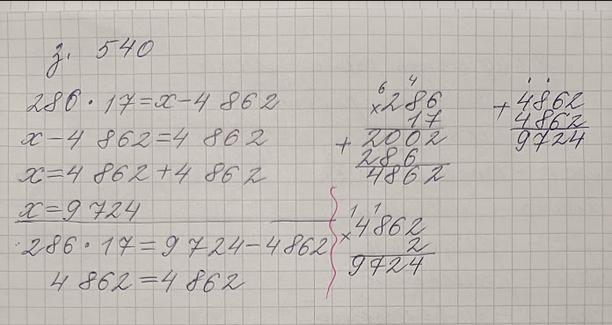 з. 540
286 · 17 = x - 4 862
x - 4 862 = 4 862
x = 4 862 + 4 862
x = 9 724
286 · 17 = 9 724 - 4 862
4 862 = 4 862
6 4
× 286
17
+ 2002
286
4862
1 1
× 4862
2
9724
+ 4862
4862
9724